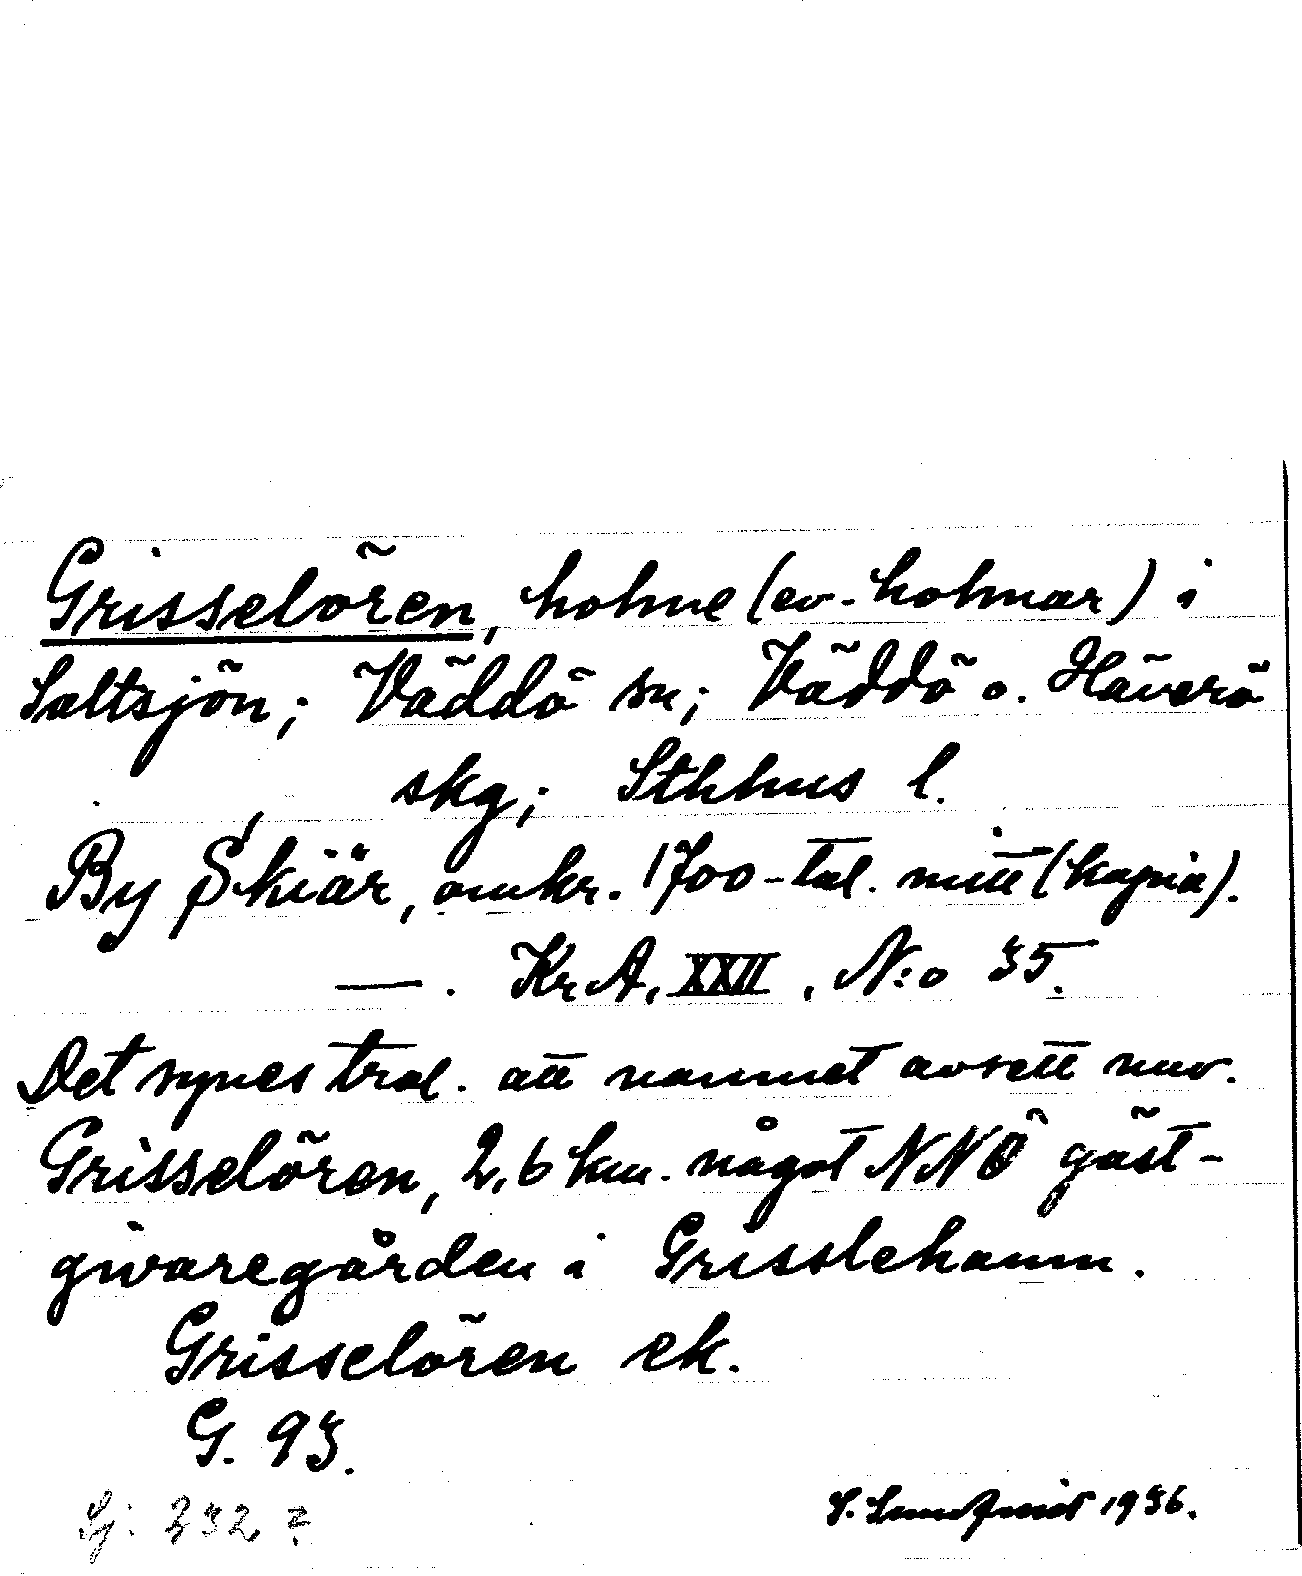 Grisselören, holme (ev. holmar) i
Saltsjön; Väddö sn; Väddö o. Häverö
skg; Sthhus l.
By Skiär, omkr. 1700-tal. mitt (kopia).
—. KrA, XXII, N:o 35.
Det synes trol. att namnet avsett nuv.
Grisselören, 2,6 km. något NNÖ gäst-
givaregården i Grisslehamn.
Grisselören ek.
G. 93.
Sj: 232
S. Lundqvist 1936.